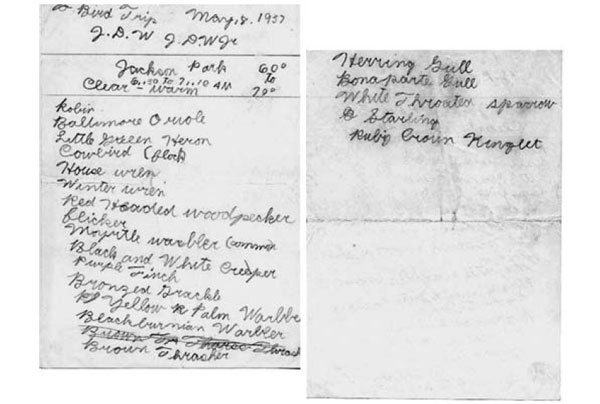 Bird Trip May, 8, 1937
J.D.W J.D.W Jr
Jackson Park 60°
6:30 to 7:10 AM to
Clear - warm 70°
Robin
Baltimore Oriole
Little Green Heron
Cowbird (flock
House wren
Winter wren
Red Headed woodpecker
Flicker
Myrtle warbler Common
Black and White Creeper
Purple Finch
Bronzed Grackle
Yellow R Palm Warbler
Blackburnian Warbler
Brown Thrasher
Herring Gull
Bonaparte Gull
White Throater sparrow
Starling
Ruby Crown Kinglet